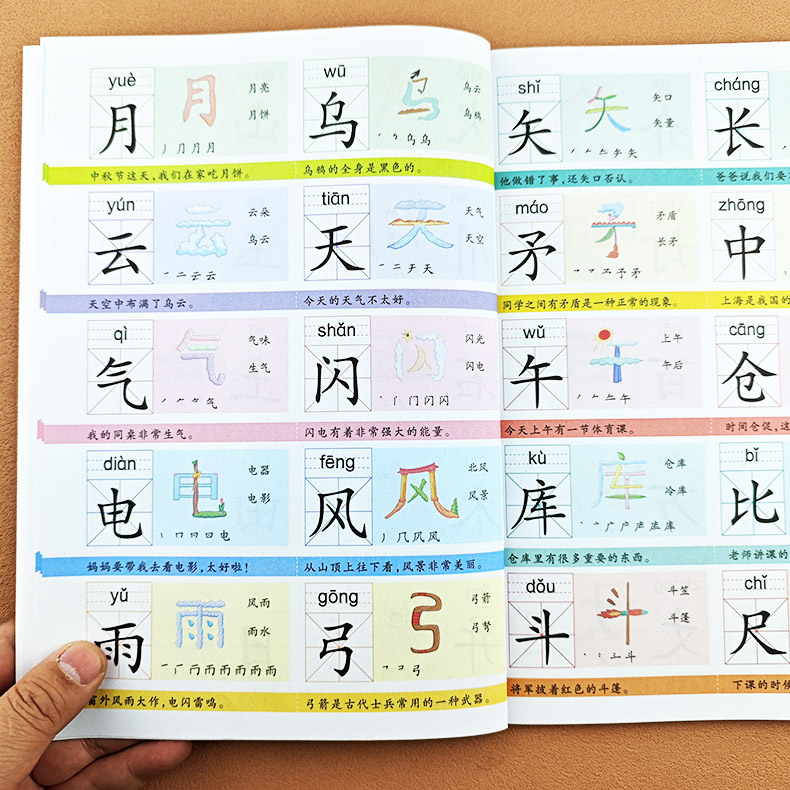 yuè
月
月亮
月饼
丿 几 月 月
中秋节这天,我们在家吃月饼。
wū
乌
乌云
乌鸦
乌鸦的全身是黑色的。
yún
云
云朵
乌云
一 二 云 云
天空中布满了乌云。
tiān
天
天气
天空
一 二 于 天
今天的天气不太好。
qì
气
气味
生气
我的同桌非常生气。
shǎn
闪
闪光
闪电
闪电有着非常强大的能量。
diàn
电
电器
电影
妈妈要带我去看电影,太好啦!
fēng
风
北风
风景
从山顶上往下看,风景非常美丽。
yǔ
雨
风雨
雨水
窗外风雨大作,电闪雷鸣。
gōng
弓
弓箭
弓弩
弓箭是古代士兵常用的一种武器。
shǐ
矢
矢口
矢量
他做错了事,还矢口否认。
cháng
长
爸爸说我们要
máo
矛
矛盾
长矛
同学之间有矛盾是一种正常的现象。
zhōng
中
上海是我国的
wǔ
午
上午
午后
今天上午有一节体育课。
cāng
仓
时间仓促,这
kù
库
仓库
冷库
仓库里有很多重要的东西。
bǐ
比
老师讲课的
dǒu
斗
斗笠
斗篷
将军披着红色的斗篷。
chǐ
尺
下课的时候